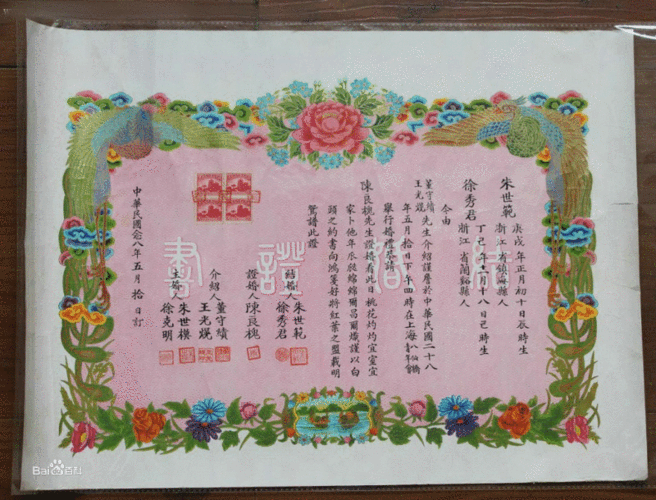 結婚證書
朱世範 浙江省鎮海縣人
庚戌年正月初十日辰時生
徐秀君 浙江省蘭谿縣人
丁巳年十一月十八日巳時生
今由
董守績
王光焜先生介紹謹詹於中華民國二十八
年五月拾日下午四時在上海八仙橋青年會
舉行婚禮恭請
陳良槐先生證婚看此日桃花灼灼宜室宜
家卜他年瓜瓞綿綿爾昌爾熾謹以白
頭之約書向鴻箋好將紅葉之盟載明
鴛譜此證
結婚人 朱世範
徐秀君
證婚人 陳良槐
介紹人 董守績
王光焜
主婚人 朱世樸
徐克明
中華民國廿八年五月拾日訂
Bai百科